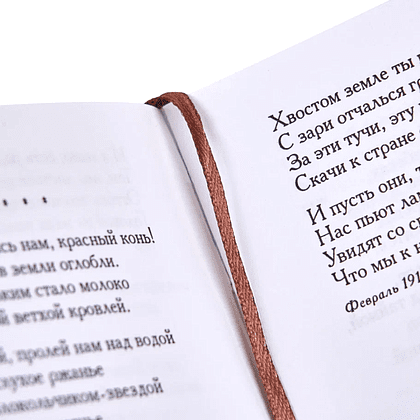 . . . .
нам, красный конь!
в земли оглобли.
стало молоко
й веткой кровлей.
й, пролей нам над водой
ржанье
звездой
Хвостом земле ты
С зари отчалься
За эти тучи, эту
Скачи к стране
И пусть они,
Нас пьют
Увидят со
Что мы к
Февраль 191